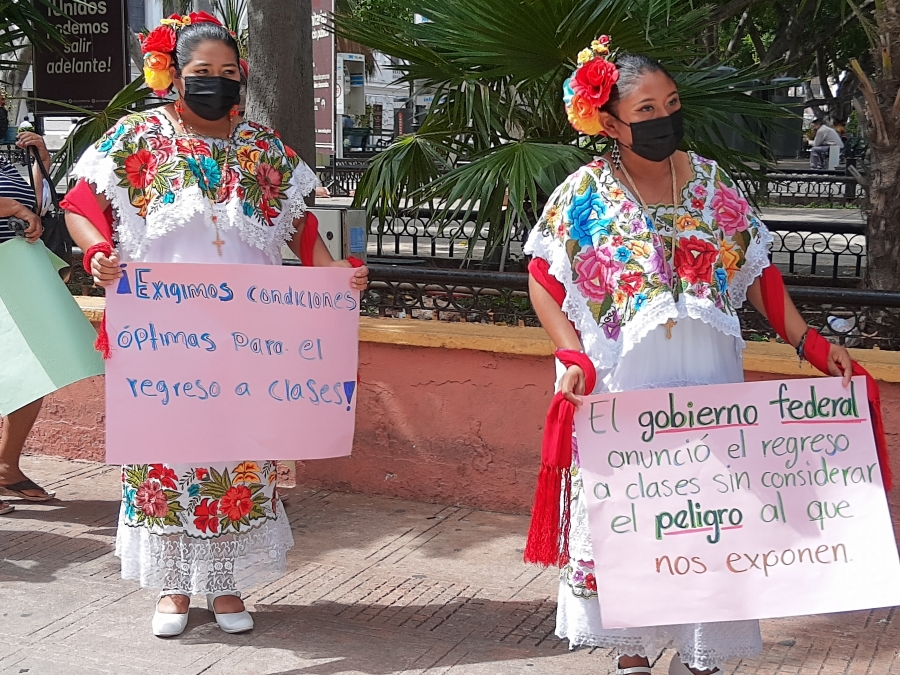 ¡Unidos
podemos
salir
adelante!
¡Exigimos condiciones
óptimas para el
regreso a clases!
El gobierno federal
anunció el regreso
a clases sin considerar
el peligro al que
nos exponen.